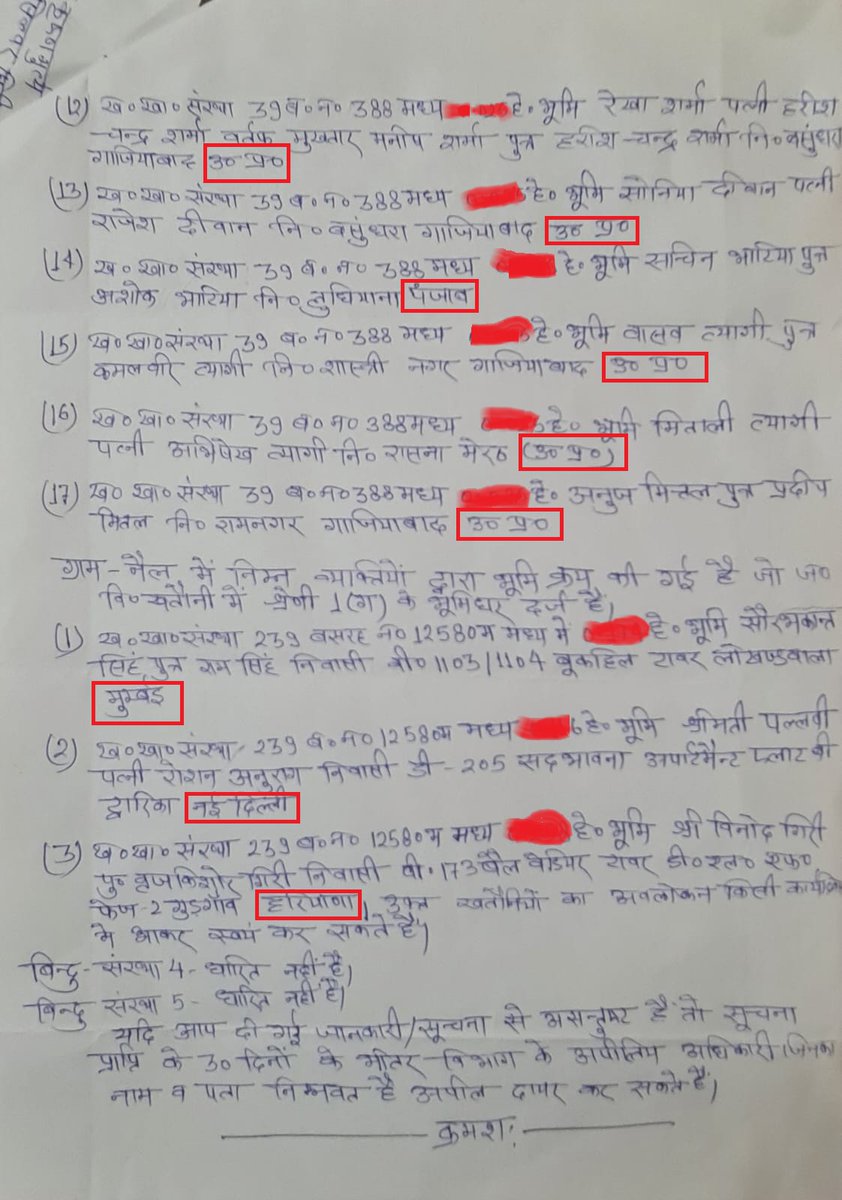 (12) ख॰खा॰ संख्या 39 ब॰न॰ 388 मध्य है॰ भूमि रेखा शर्मा पत्नी हरीश
चन्द्र शर्मा वर्तफ मुख्तार मनीष शर्मा पुत्र हरीश चन्द्र शर्मा नि॰ वसुंधरा
गाजियाबाद उ॰ प्र॰
(13) ख॰खा॰संख्या 39 ब॰न॰388 मध्य हे॰ भूमि सोनिया दीवान पत्नी
राजेश दीवान नि॰ वसुंधरा गाजियाबाद उ॰ प्र॰
(14) ख॰खा॰ संख्या 39 ब॰न॰ 388 मध्य हे॰ भूमि सचिन भाटिया पुत्र
अशोक भाटिया नि॰ लुधियाना पंजाब
(15) ख॰खा॰संख्या 39 ब॰न॰ 388 मध्य हे॰ भूमि वासव त्यागी पुत्र
कमलवीर त्यागी नि॰ शास्त्री नगर गाजियाबाद उ॰ प्र॰
(16) ख॰खा॰संख्या 39 ब॰न॰388 मध्य हे॰ भूमि मिताली त्यागी
पत्नी अभिषेख त्यागी नि॰ रासना मेरठ (उ॰ प्र॰)
(17) ख॰ खा॰संख्या 39 ब॰न॰388 मध्य हे॰ अनुज मित्तल पुत्र प्रदीप
मित्तल नि॰ रामनगर गाजियाबाद उ॰ प्र॰
ग्राम - नैल में निम्न व्यक्तियों द्वारा भूमि क्रय की गई है जो ज॰
वि॰ खतौनी में श्रेणी 1(ग) के भूमिधर दर्ज है।
(1) ख॰खा॰संख्या 239 बसरह न॰ 12580म मध्य में हे॰ भूमि सौरभकान्त
सिंह पुत्र राम सिंह निवासी बी॰ 1103/1104 ब्रूकहिल टावर लोखण्डवाला
मुम्बई
(2) ख॰खा॰संख्या 239 ब॰न॰12580म मध्य हे॰ भूमि श्रीमती पल्लवी
पत्नी रोशन अनुराग निवासी डी - 205 सदभावना अपार्टमैन्ट प्लाट बी
द्वारिका नई दिल्ली
(3) ख॰खा॰ संख्या 239 ब॰न॰ 12580म मध्य हे॰ भूमि श्री विनोद गिरी
पु॰ वृजकिशोर गिरी निवासी बी॰ 173 बैल वेडियर टावर डी॰ एल॰ एफ॰
फेज-2 गुडगांव हरियाणा, उक्त खतौनियों का अवलोकन किसी कार्यदिवस
मे आकर स्वयं कर सकते हैं।
बिन्दु - संख्या 4 - धारित नहीं है।
बिन्दु संख्या 5 - धारित नहीं है।
यदि आप दी गई जानकारी/सूचना से असन्तुष्ट हैं तो सूचना
प्राप्ति के 30 दिनों के भीतर विभाग के अपीलिय अधिकारी जिनका
नाम व पता निम्नवत है अपील दायर कर सकते हैं।
क्रमशः